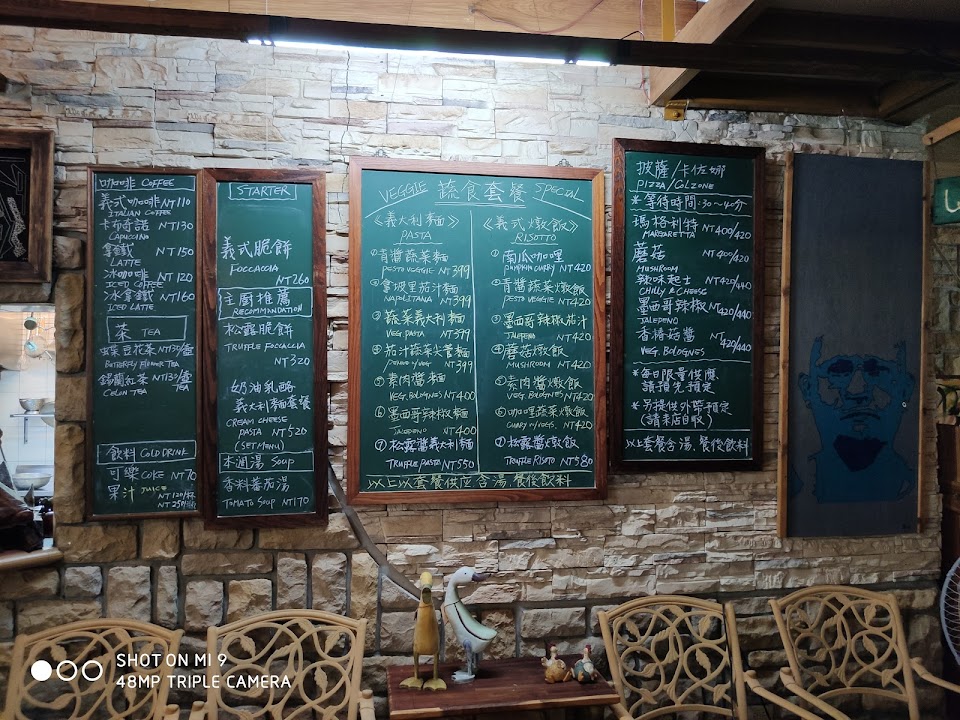 咖啡 COFFEE
義式咖啡 NT110
ITALIAN COFFEE
卡布奇諾 NT130
CAPUCCINO
拿鐵 NT150
LATTE
冰咖啡 NT120
ICED COFFEE
冰拿鐵 NT160
ICED LATTE
茶 TEA
蝶豆花茶 NT130/壺
BUTTERFLY FLOWER TEA
錫蘭紅茶 NT130/壺
CELON TEA
飲料 COLD DRINK
可樂 COKE NT70
果汁 JUICE NT120/杯
NT250/
STARTER
義式脆餅
FOCCACCIA
NT260
主廚推薦
RECOMMANDATION
松露脆餅
TRUFFLE FOCCACCIA
NT320
奶油乳酪
義大利麵套餐
CREAM CHEESE
PASTA NT520
(SET MENU)
本週湯 SOUP
香料蕃茄湯
TOMATO SOUP NT170
VEGGIE 蔬食套餐 SPECIAL
《義大利麵》
PASTA
①青醬蔬菜麵
PESTO VEGGIE NT399
②拿坡里茄汁麵
NAPOLITANA NT399
③蔬菜義大利麵
VEG. PASTA NT399
④茄汁蔬菜尖管麵
NT399
⑤素肉醬麵
VEG. BOLOGNES NT400
⑥墨西哥辣椒麵
JALEPENO NT400
⑦松露醬義大利麵
TRUFFLE PASTA NT550
《義式燉飯》
RISOTTO
①南瓜咖哩
PUMPKIN CURRY NT420
②青醬蔬菜燉飯
PESTO VEGGIE NT420
③墨西哥辣椒茄汁
JALEPENO NT420
④蘑菇燉飯
MUSHROOM NT420
⑤素肉醬燉飯
VEG. BOLOGNES NT420
⑥咖哩蔬菜燉飯
CURRY w/VEGGS. NT420
⑦松露醬燉飯
TRUFFLE RISOTO NT580
以上以套餐供应含湯.餐後飲料
披薩/卡佐娜
PIZZA/CALZONE
*等待時間:30~40分
瑪格利特 NT400/420
MARGARETTA
蘑菇 NT400/420
MUSHROOM
辣味起士 NT420/440
CHILLY & CHEESE
墨西哥辣椒 NT420/440
JALEPENO
香椿菇醬 NT420/440
VEG. BOLOGNES
*每日限量供應
請預先預定
*另提供外帶預定
(請來店自取)
以上套餐含湯.餐後飲料
SHOT ON MI 9
48MP TRIPLE CAMERA